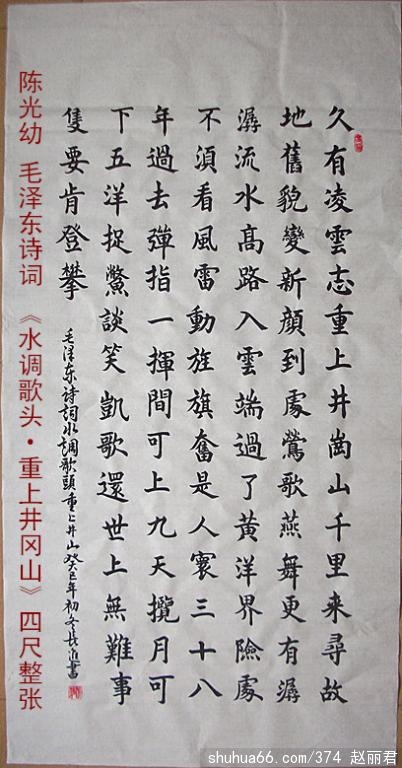 久有凌雲志重上井崗山千里来尋故
地舊貌變新顔到處鶯歌燕舞更有潺
潺流水高路入雲端過了黄洋界險處
不須看風雷動旌旗奮是人寰三十八
年過去彈指一揮間可上九天攬月可
下五洋捉鱉談笑凱歌還世上無難事
隻要肯登攀
毛泽东诗詞水調歌頭重上井山癸巳年初冬
陈光幼 毛泽东诗词 《水调歌头·重上井冈山》 四尺整张
shuhua66.com/374 赵丽君